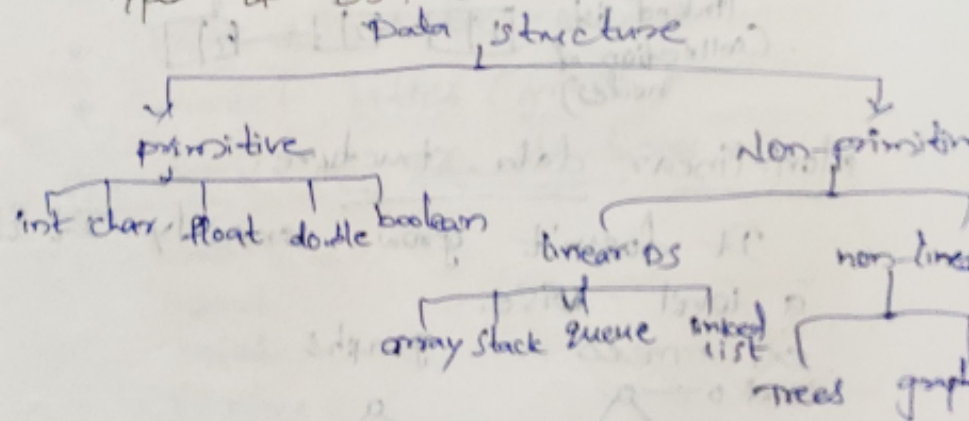 Data structure
primitive Non-primitiv
int char float double boolean
linear DS non line
array stack queue linked
list
Trees graph